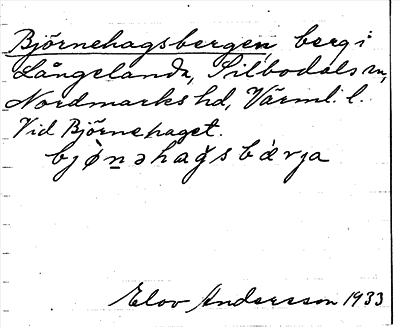 Björnehagsbergen berg i
Långelanda, Silbodals sn,
Nordmarks hd, Värml. l.
Vid Björnehaget.
bjø̀n̠əhağsbæ̀rja
Elov Andersson 1933